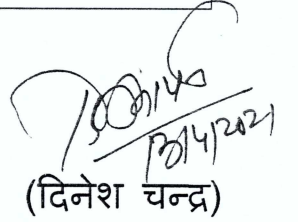 13/4/2021
(दिनेश चन्द्र)